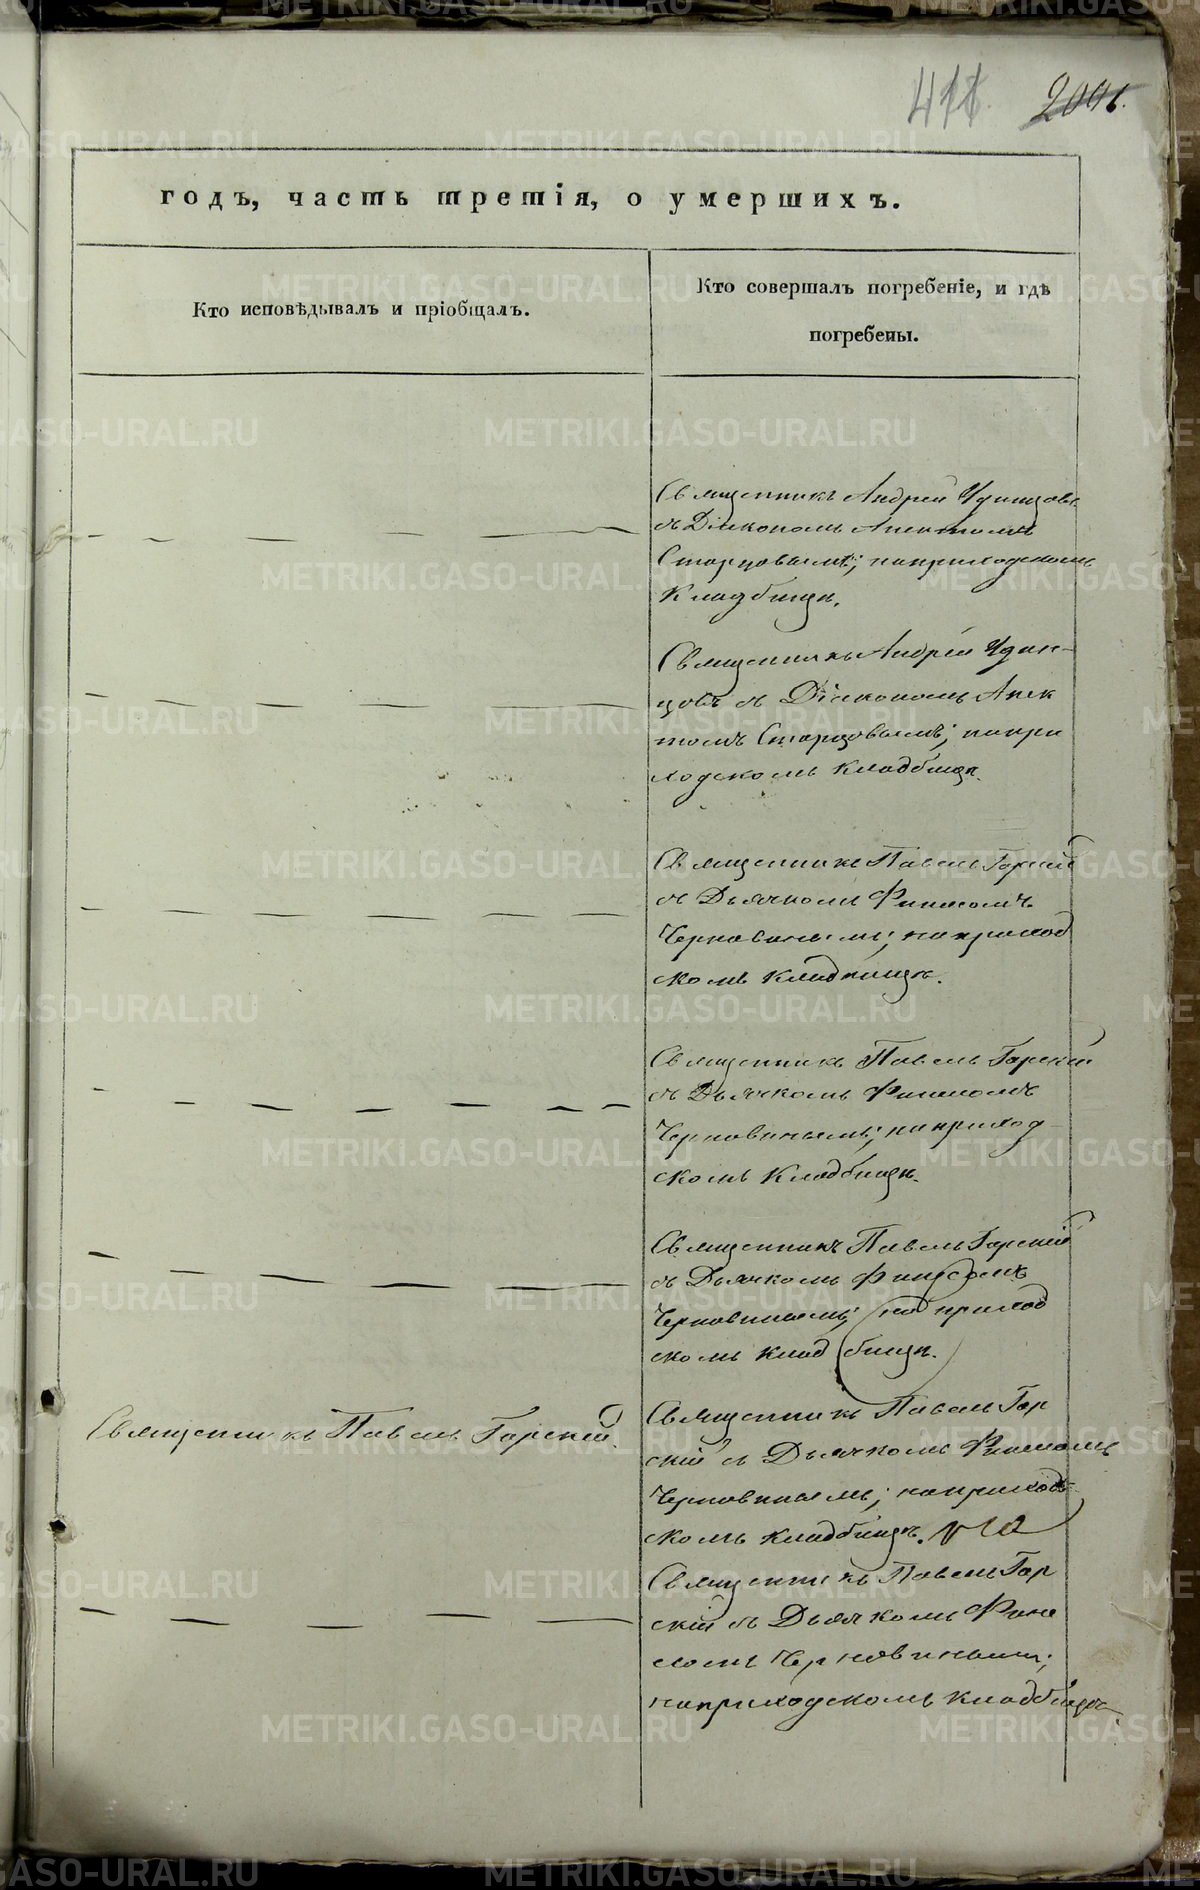 411. 200б.
годъ, часть третія, о умершихъ.
Кто исповѣдывалъ и пріобщалъ.
Кто совершалъ погребеніе, и гдѣ
погребены.
Священникъ Андрей Удинцовъ
съ Діакономъ Аѳектомъ
Старцовымъ; наприходскомъ
Кладбищѣ.
Священникъ Андрей Удин-
цовъ съ Діакономъ
Старцовымъ; напри
ходскомъ Кладбищѣ.
Священникъ Павелъ Горскій
съ Дьячкомъ Финесомъ
Черновинымъ; наприход
скомъ Кладбищѣ.
Священникъ Павелъ Горскій
съ Дьячкомъ Финесомъ
Черновинымъ; наприход-
скомъ Кладбищѣ.
Священникъ Павелъ Горскій
съ Дьячкомъ Финесомъ
Черновинымъ; на приход
скомъ кладбищѣ.
Священникъ Павелъ Горскій.
Священникъ Павелъ Гор
скій съ Дьячкомъ Финесомъ
Черновинымъ; наприход-
скомъ кладбищѣ.
Священникъ Павелъ Гор
скій съ Дьячкомъ Фине
сомъ Черновинымъ;
наприходскомъ кладбищѣ
METRIKI.GASO-URAL.RU